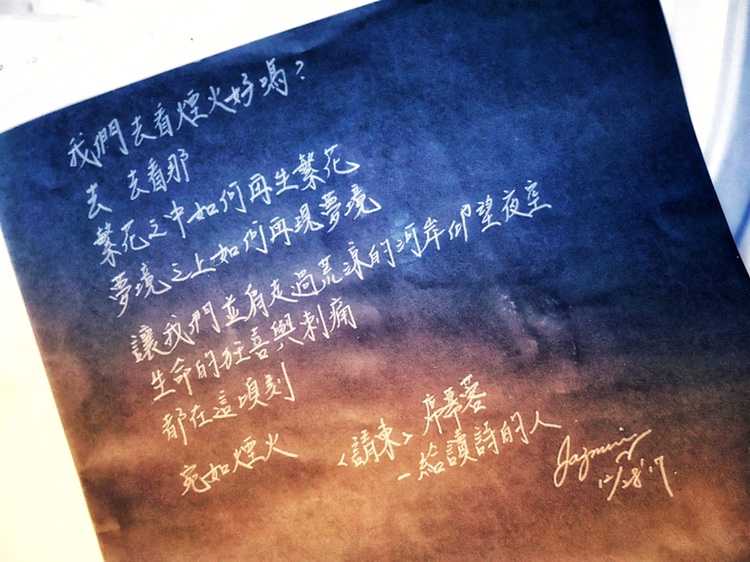 我們去看煙火好嗎？
去 去看那
繁花之中如何再生繁花
夢境之上如何再現夢境
讓我們並肩走過荒涼的河岸仰望夜空
生命的狂喜與刺痛
都在這頃刻
宛如煙火
〈請柬〉席慕蓉
－給讀詩的人
Jasmine
12/28'17.